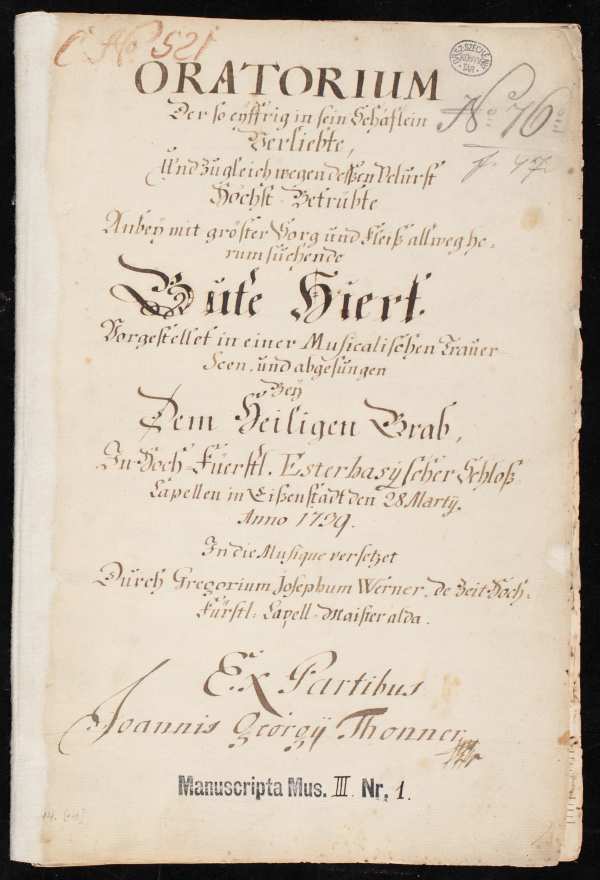 C No 521
ORSZ. SZÉCHÉNYI KÖNYVTÁR
ORATORIUM
No 76
Der so eyffrig in sein Schäflein
Verliebte,
f. 47
Und Zugleich wegen deßen Velurst
Höchst-Betrübte
Anbey mit gröster Sorg und Fleiß allweg he-
rumsuchende
Gute Hiert.
Vorgestellet in einer Musicalischen Trauer
Scen, und abgesungen
Bey
Dem Heiligen Grab,
In Hoch-Füerstl. Esterhasÿscher Schloß
Capellen in Eißenstadt den 28 Martÿ.
Anno 1729.
In die Musique versetzet
Durch Gregorium Josephum Werner, de Zeit Hoch-
Fürstl: Capell-Maister alda.
Ex Partibus
Joannis Georgÿ Thonner
Manuscripta Mus. III. Nr. 1.